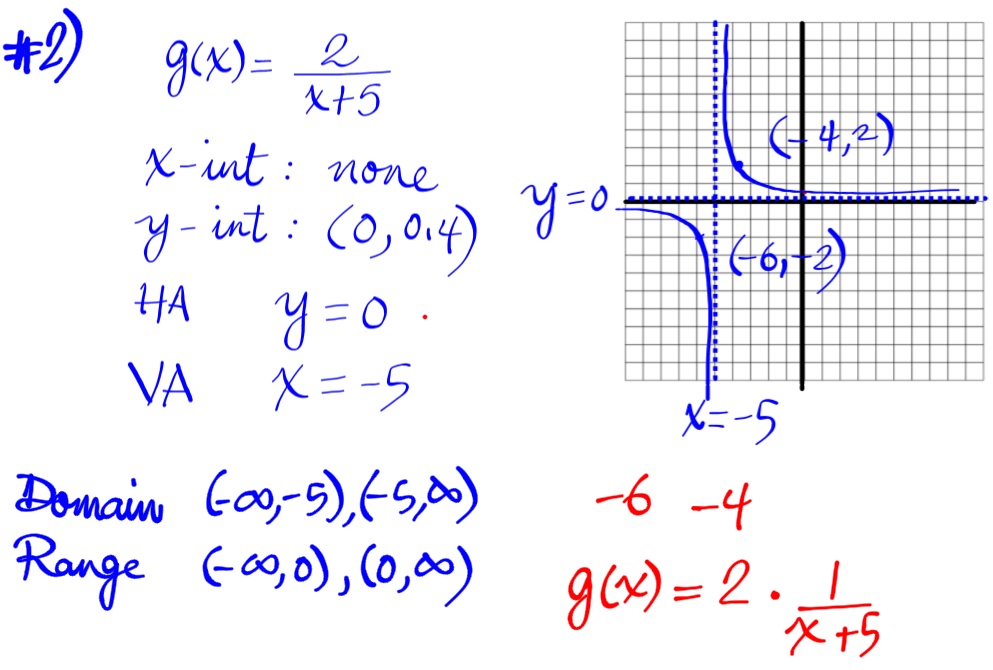 #2)
g(x) = 2/(x+5)
x-int : none
y-int : (0, 0.4)
HA y = 0 .
VA x = -5
(-4, 2)
y = 0
(-6, -2)
x = -5
Domain (-∞, -5), (-5, ∞)
Range (-∞, 0), (0, ∞)
-6 -4
g(x) = 2 · 1/(x+5)